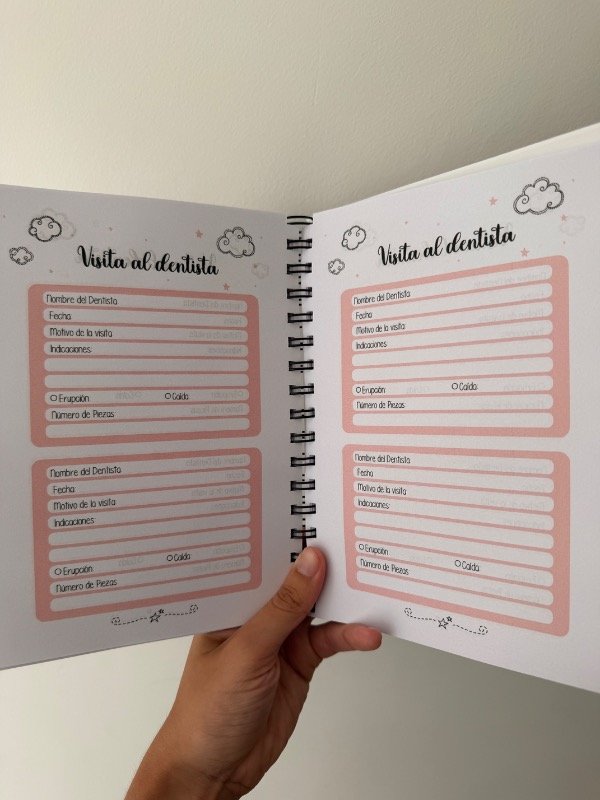 Visita al dentista
Nombre del Dentista
Fecha
Motivo de la visita
Indicaciones:
Erupción Caída
Número de Piezas
Nombre del Dentista
Fecha
Motivo de la visita
Indicaciones:
Erupción Caída
Número de Piezas
Visita al dentista
Nombre del Dentista
Fecha
Motivo de la visita
Indicaciones:
Erupción Caída
Número de Piezas
Nombre del Dentista
Fecha
Motivo de la visita
Indicaciones:
Erupción Caída
Número de Piezas